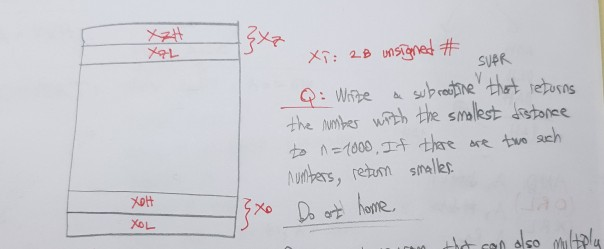 X7H
X7L
} X7
X0H
X0L
} X0
Xi: 2B unsigned #
Q: Write a subroutine SUBR that returns
the number with the smallest distance
to n=1000. If there are two such
numbers, return smaller.
Do at home.
that can also multiply